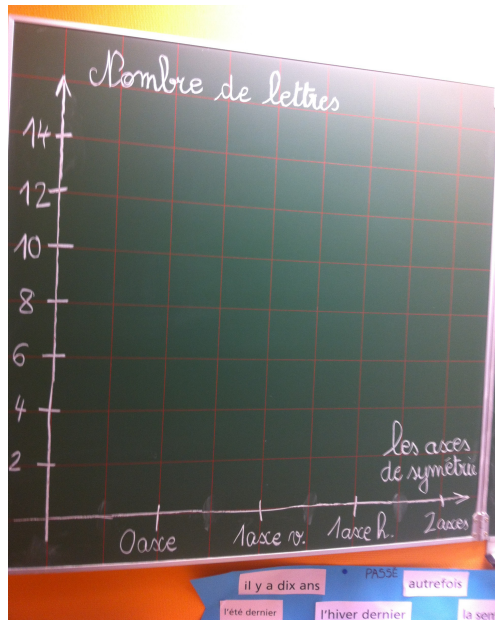 Nombre de lettres
14
12
10
8
6
4
2
les axes
de symétrie
0 axe
1 axe v.
1 axe h.
2 axes
il y a dix ans
PASSÉ
autrefois
l'été dernier
l'hiver dernier
la sem